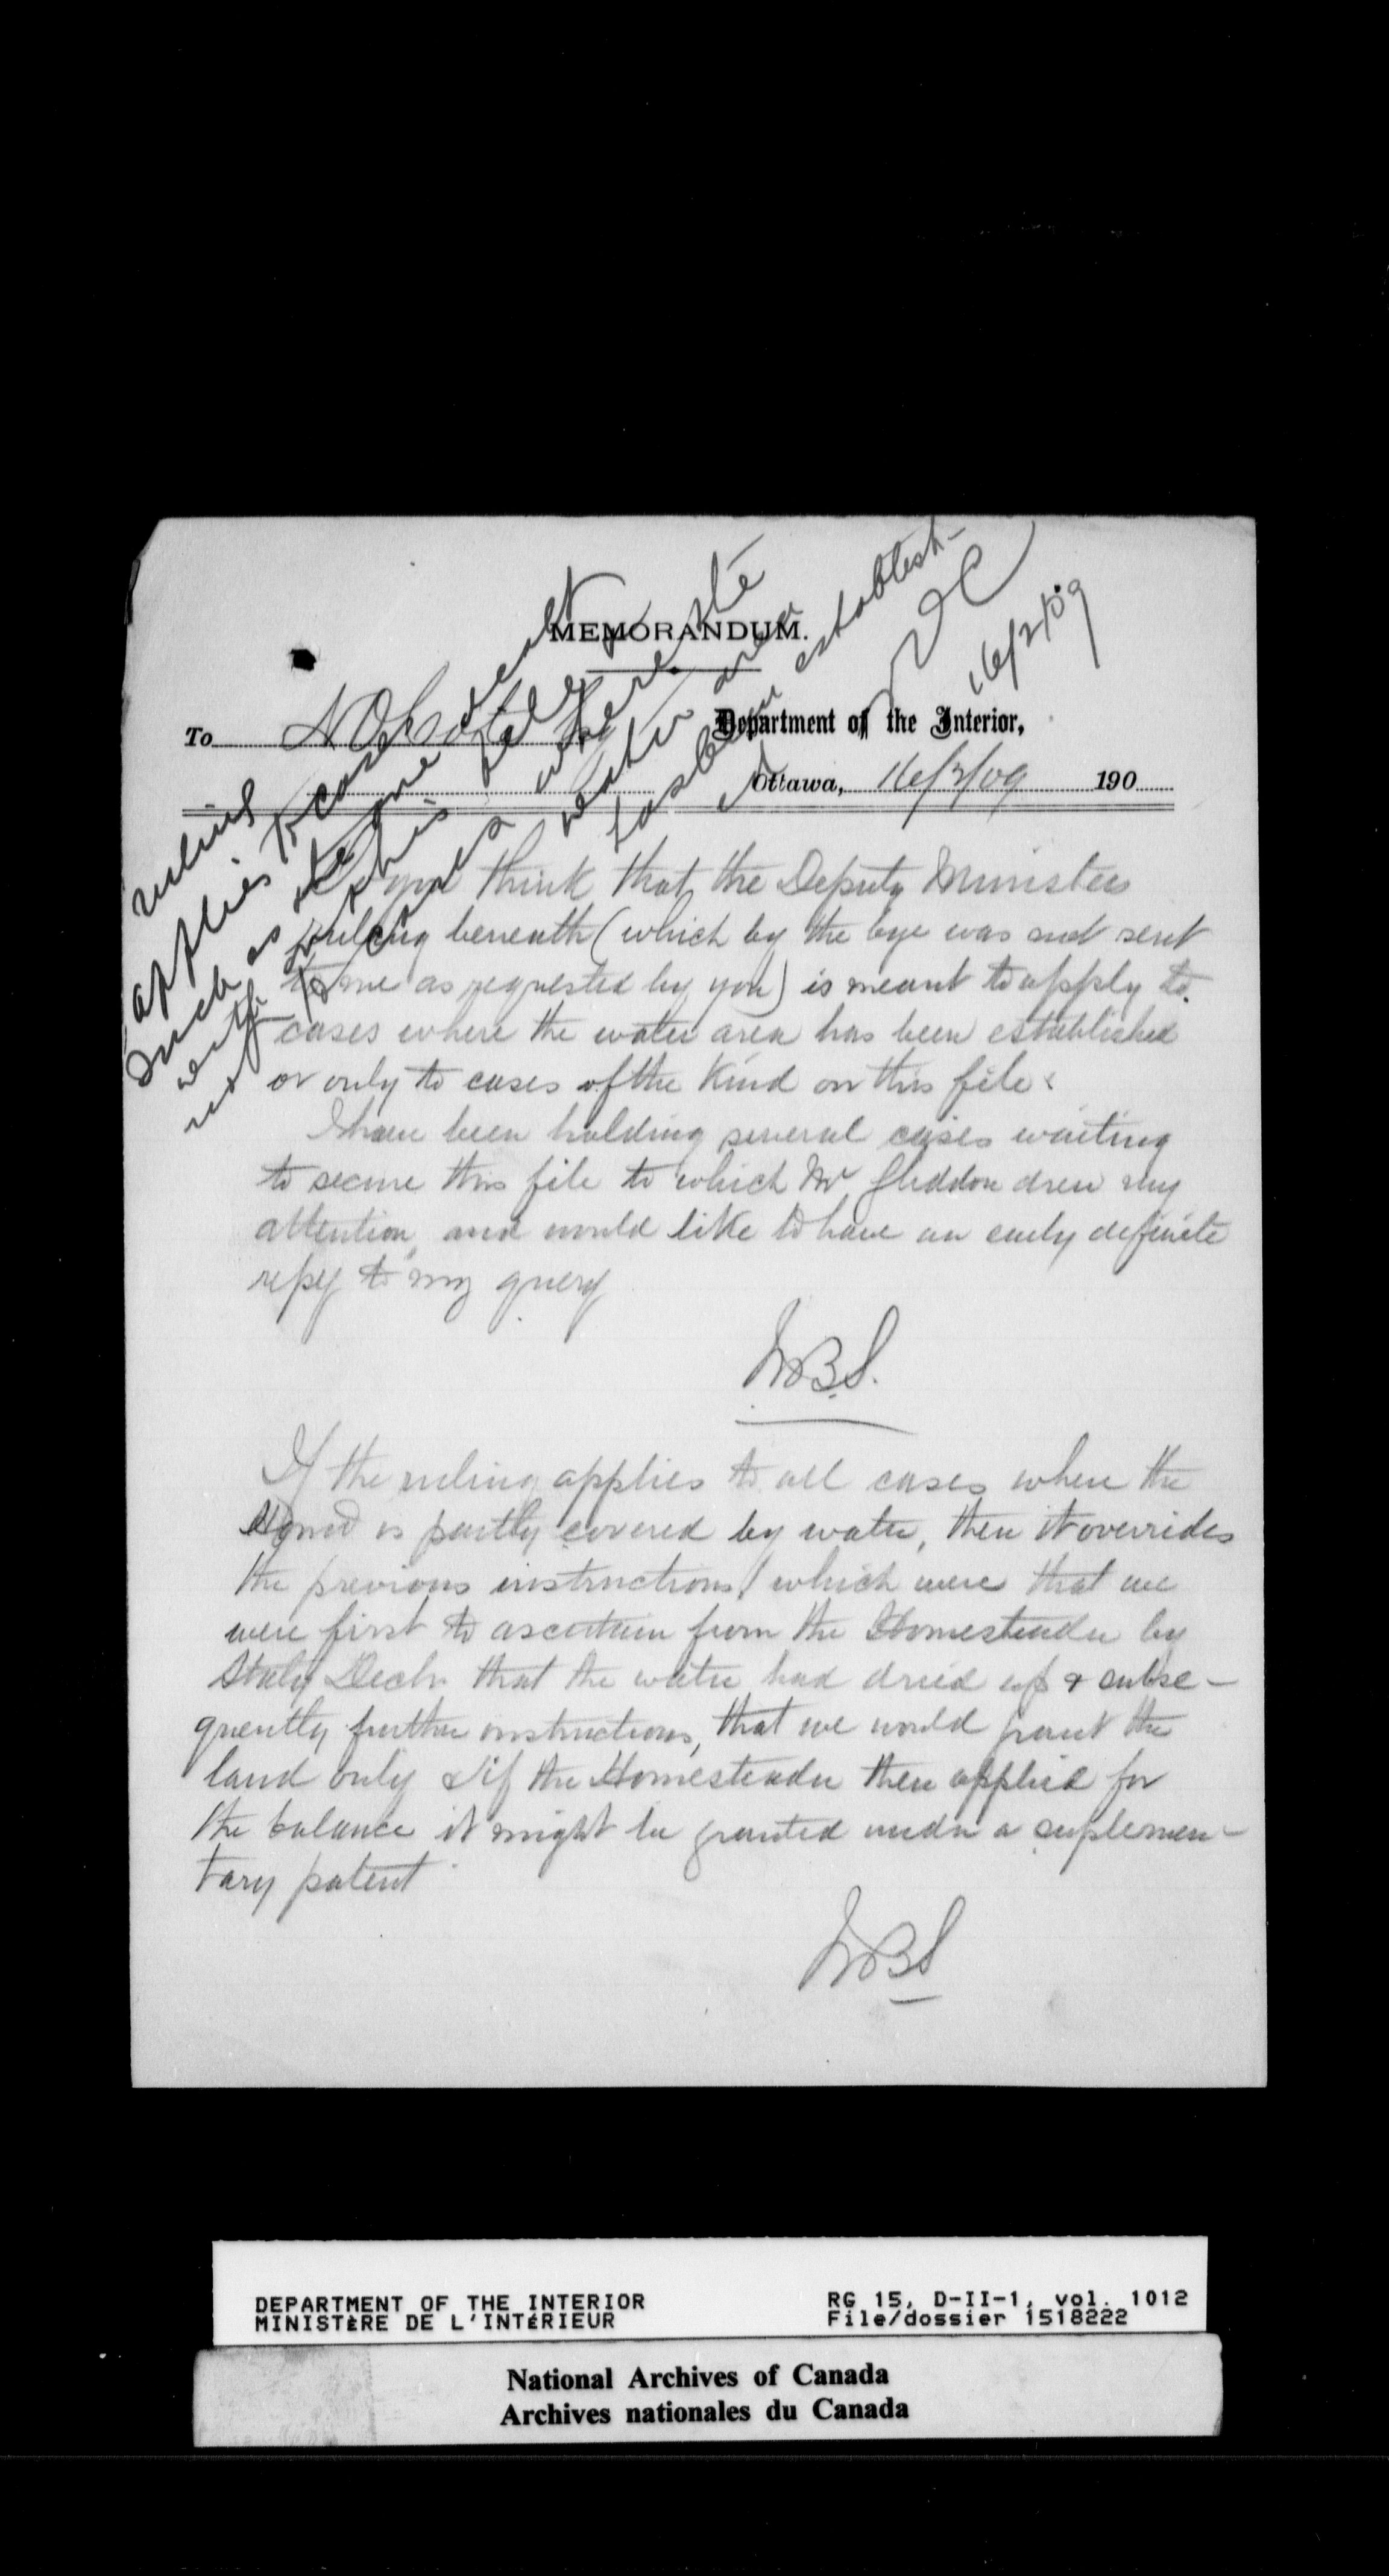 MEMORANDUM.
To
Department of the Interior,
Ottawa, 16/2/09 190
ruling
applies to cases
such as the one dealt
with on this file &
not to cases where the
water area
has been establish-
ed
16/2/09
you think that the Deputy Ministers
ruling beneath (which by the bye was not sent
to me as requested by you) is meant to apply to
cases where the water area has been established
or only to cases of the kind on this file.
I have been holding several cases waiting
to secure this file to which Mr Gliddon drew my
attention, and would like to have an early definite
repy to my query
WBS.
If the ruling applies to all cases where the
is partly covered by water, then it overrides
the previous instructions, which were that we
were first to ascertain from the Homesteader by
Staty Decln that the water had dried up & subse-
quently further instructions, that we would grant the
land only & if the Homesteader then applied for
the balance it might be granted under a suplemen-
tary patent
WBS
DEPARTMENT OF THE INTERIOR
MINISTÈRE DE L'INTÉRIEUR
RG 15, D-II-1, vol. 1012
File/dossier 1518222
National Archives of Canada
Archives nationales du Canada